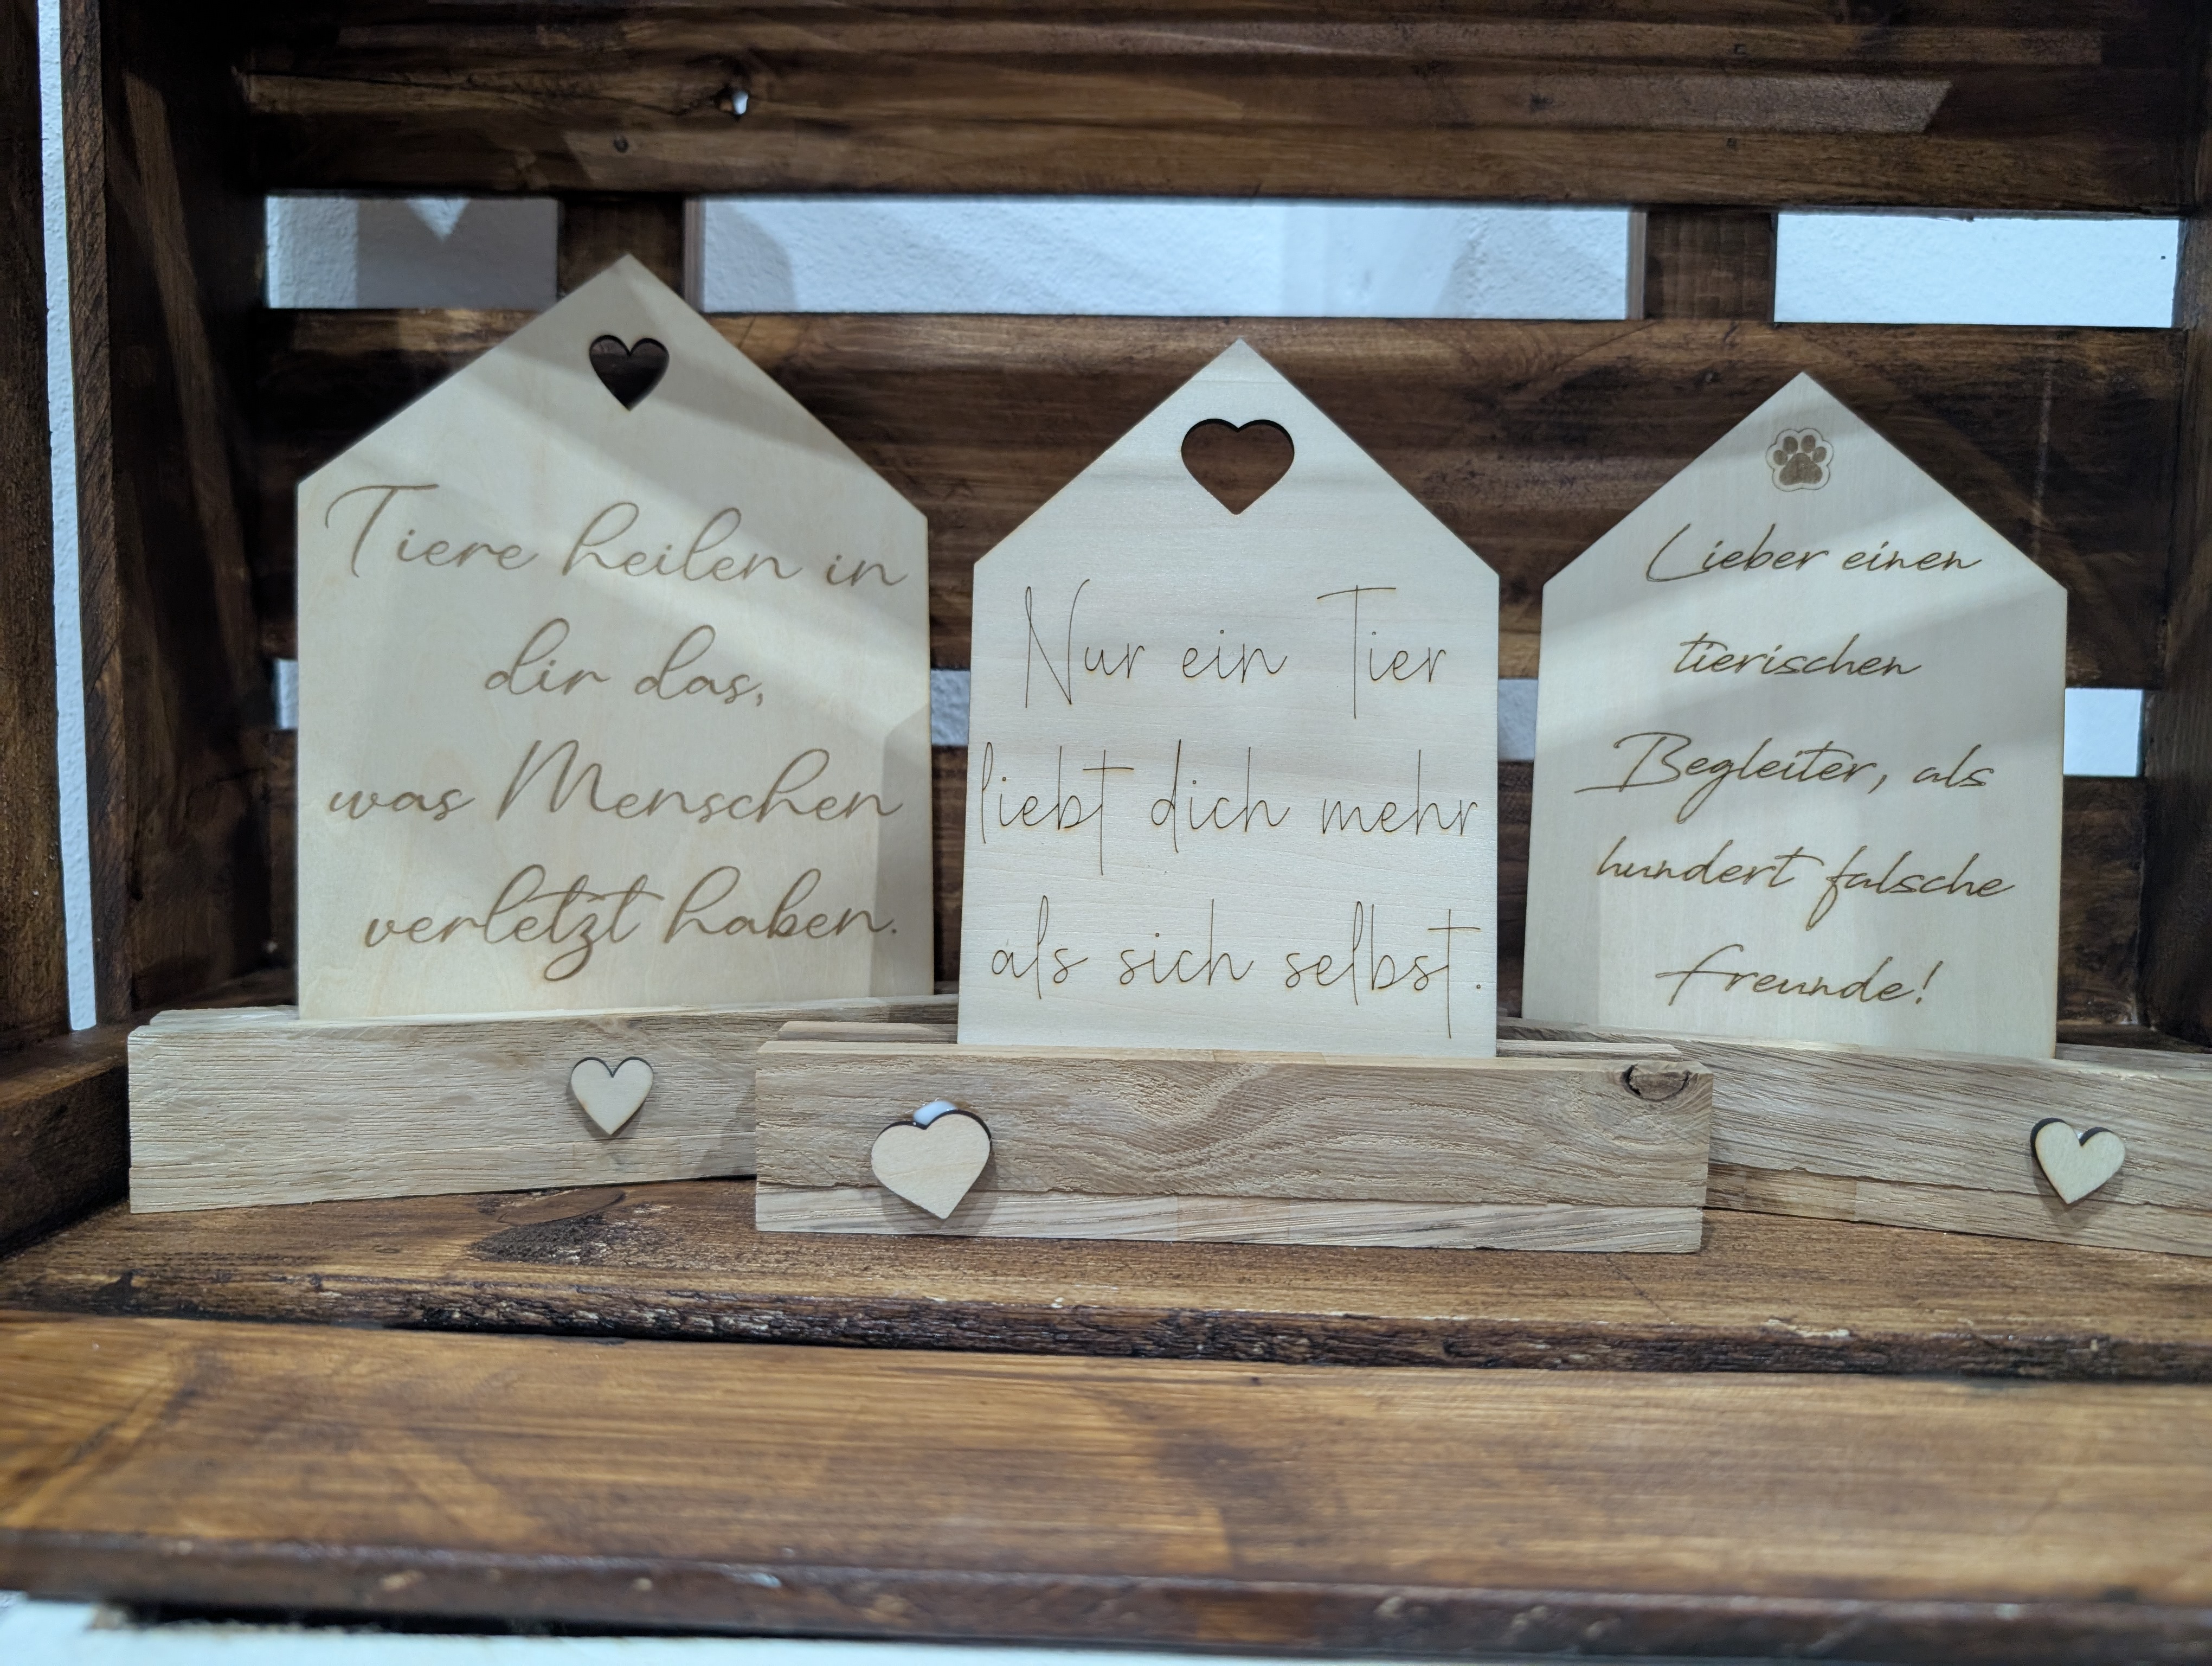 Tiere heilen in
dir das,
was Menschen
verletzt haben.
Nur ein Tier
liebt dich mehr
als sich selbst.
Lieber einen
tierischen
Begleiter, als
hundert falsche
Freunde!